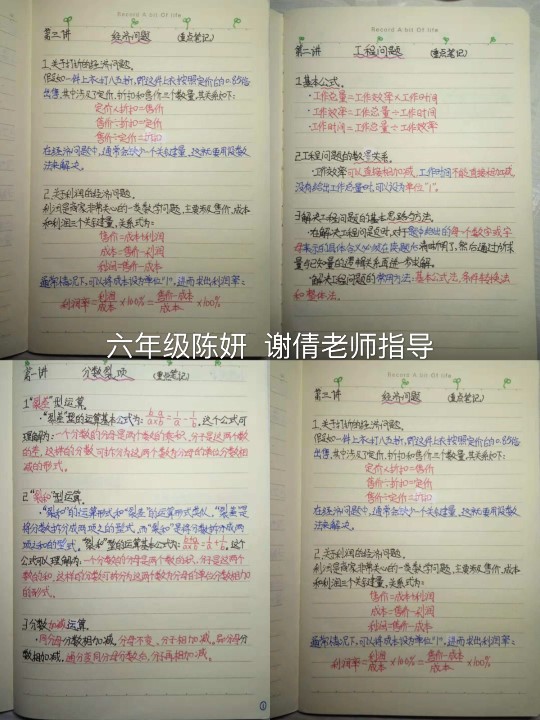 Record A bit Of life
第三讲 经济问题 (重点笔记)
1.关于打折的经济问题。
假如一件上衣打八五折,即这件上衣按照定价的0.85倍
出售,其中涉及了定价、折扣和售价三个数量,其关系如下:
定价×折扣=售价
售价÷折扣=定价
售价÷定价=折扣
在经济问题中,通常会缺少一个关键量,这就需要用设数
法来解决。
2.关于利润的经济问题。
利润是商家非常关心的一类数学问题,主要涉及售价、成本
和利润三个关键量,关系式为:
售价=成本+利润
成本=售价-利润
利润=售价-成本
通常情况下,可以将成本设为单位"1",进而求出利润率:
利润率=利润/成本×100%=售价-成本/成本×100%
Record A bit Of life
第二讲 工程问题 (重点笔记)
1.基本公式。
·工作总量=工作效率×工作时间
·工作效率=工作总量÷工作时间
·工作时间=工作总量÷工作效率
2.工程问题的数量关系。
·工作效率可以直接相加减,工作时间不能直接相加减,
没有给出工作总量时,可以设为单位"1"。
3.解决工程问题的基本思路与方法。
·在解决工程问题时,对于题中给出的每个数字或字
母表示的具体含义必须在读题时清晰明了,然后通过所求
量与已知量的逻辑关系再进一步求解。
·解决工程问题的常用方法:基本公式法、条件转换法
和整体法。
六年级陈妍 谢倩老师指导
第一讲 分数裂项 (重点笔记)
1."裂差"型运算。
·"裂差"型的运算基本公式为:b-a/a×b=1/a-1/b,这个公式可
理解为:一个分数的分母是两个数的乘积,分子是这两个数
的差,这样的分数可拆分为这两个数为分母的单位分数相
减的形式。
2."裂和"型运算。
·"裂和"的运算形式和"裂差"的运算形式类似,"裂差"是
将分数拆分成两项之差的型式,而"裂和"是将分数拆分成两
项之和的型式。"裂和"型的运算基本公式为:a+b/a×b=1/a+1/b,这个
公式可以理解为:一个分数的分母是两个数的积,分子是这两个
数的和,这样的分数可拆分为这两个数为分母的单位分数相加
的形式。
3.分数加减运算。
·同分母分数相加减,分母不变,分子相加减。异分母分
数相加减,通分变同分母分数后,分子再相加减。
①
Record A bit Of life
第三讲 经济问题 (重点笔记)
1.关于打折的经济问题。
假如一件上衣打八五折,即这件上衣按照定价的0.85倍
出售,其中涉及了定价、折扣和售价三个数量,其关系如下:
定价×折扣=售价
售价÷折扣=定价
售价÷定价=折扣
在经济问题中,通常会缺少一个关键量,这就需要用设数
法来解决。
2.关于利润的经济问题。
利润是商家非常关心的一类数学问题,主要涉及售价、成本
和利润三个关键量,关系式为:
售价=成本+利润
成本=售价-利润
利润=售价-成本
通常情况下,可以将成本设为单位"1",进而求出利润率:
利润率=利润/成本×100%=售价-成本/成本×100%